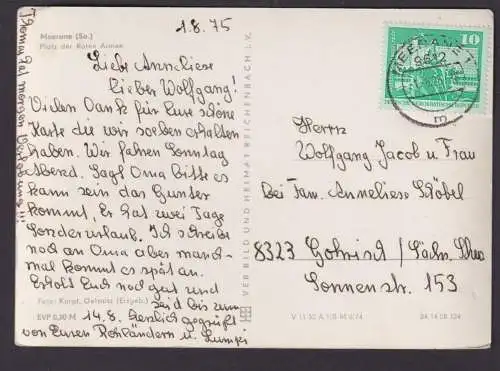 1.8.75
Meerane (Sa.)
Platz der Roten Armee
Liebe Anneliese
Lieber Wolfgang!
Vielen Dank für Eure schöne
Karte die wir soeben erhalten
haben. Wir fahren Sonntag
Abend. Sagt Oma bitte es
kann sein das Gunter
kommt, Er hat zwei Tage
Sonderurlaub. Ich schreibe
noch an Oma aber manch-
mal kommt es spät an.
Erholt Euch noch gut und
seid bis zum
Foto: Karpf, Oelsnitz (Erzgeb.)
14.8. herzlich gegrüßt
EVP 0,20 M
von Euren
Thomas hat morgen
VEB BILD UND HEIMAT REICHENBACH I. V.
V 11 50
10
MEERANE
9612
DEUTSCHE DEMOKRATISCHE REPUBLIK
Herrn
Wolfgang Jacob u Frau
bei Fam. Anneliese Schöbel
8323 Gohrisch / Sächs. Schw
Sonnenstr. 153